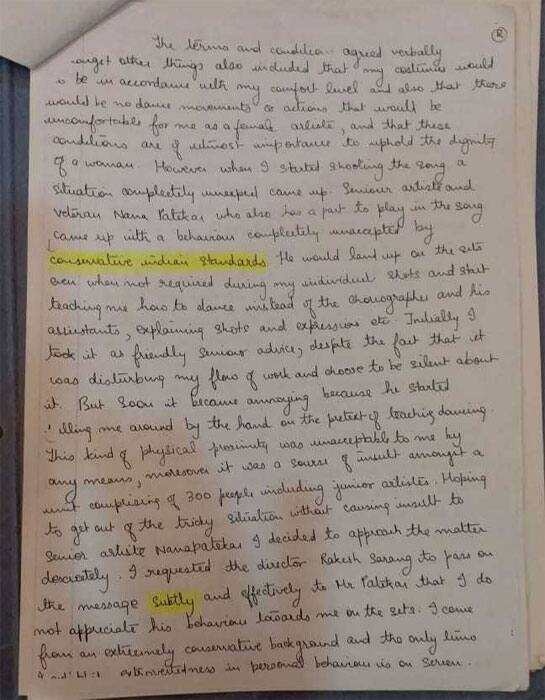 R
The terms and condition agreed verbally
other things also included that my costumes would
be in accordance with my comfort level and also that there
would be no dance movements or actions that would be
uncomfortable for me as a female artiste, and that these
conditions are of utmost importance to uphold the dignity
of a woman. However when I started shooting the song a
situation completely came up. Seniour artiste and
veteran Nana Patekar who also has a part to play in the song
came up with a behaviour completely unaccepted by
conservative indian standards. He would land up on the sets
even when not required during my individual shots and start
teaching me how to dance instead of the choreographer and his
assistants, explaining shots and expressions etc. Initially I
took it as friendly Seniour advice, despite the fact that it
was disturbing my flow of work and choose to be silent about
it. But soon it became annoying because he started
lling me around by the hand on the pretext of teaching dancing.
This kind of physical proximity was unacceptable to me by
any means, moreover it was a source of insult amongst a
unit comprising of 300 people including junior artistes. Hoping
to get out of the tricky situation without causing insult to
Senior artiste Nanapatekar I decided to approach the matter
descretely. I requested the director Rakesh Sarang to pass on
the message subtly and effectively to Mr Patekar that I do
not appreciate his behaviour towards me on the sets. I come
from an extremely conservative background and the only
extrovertedness in personal behaviour is on screen.